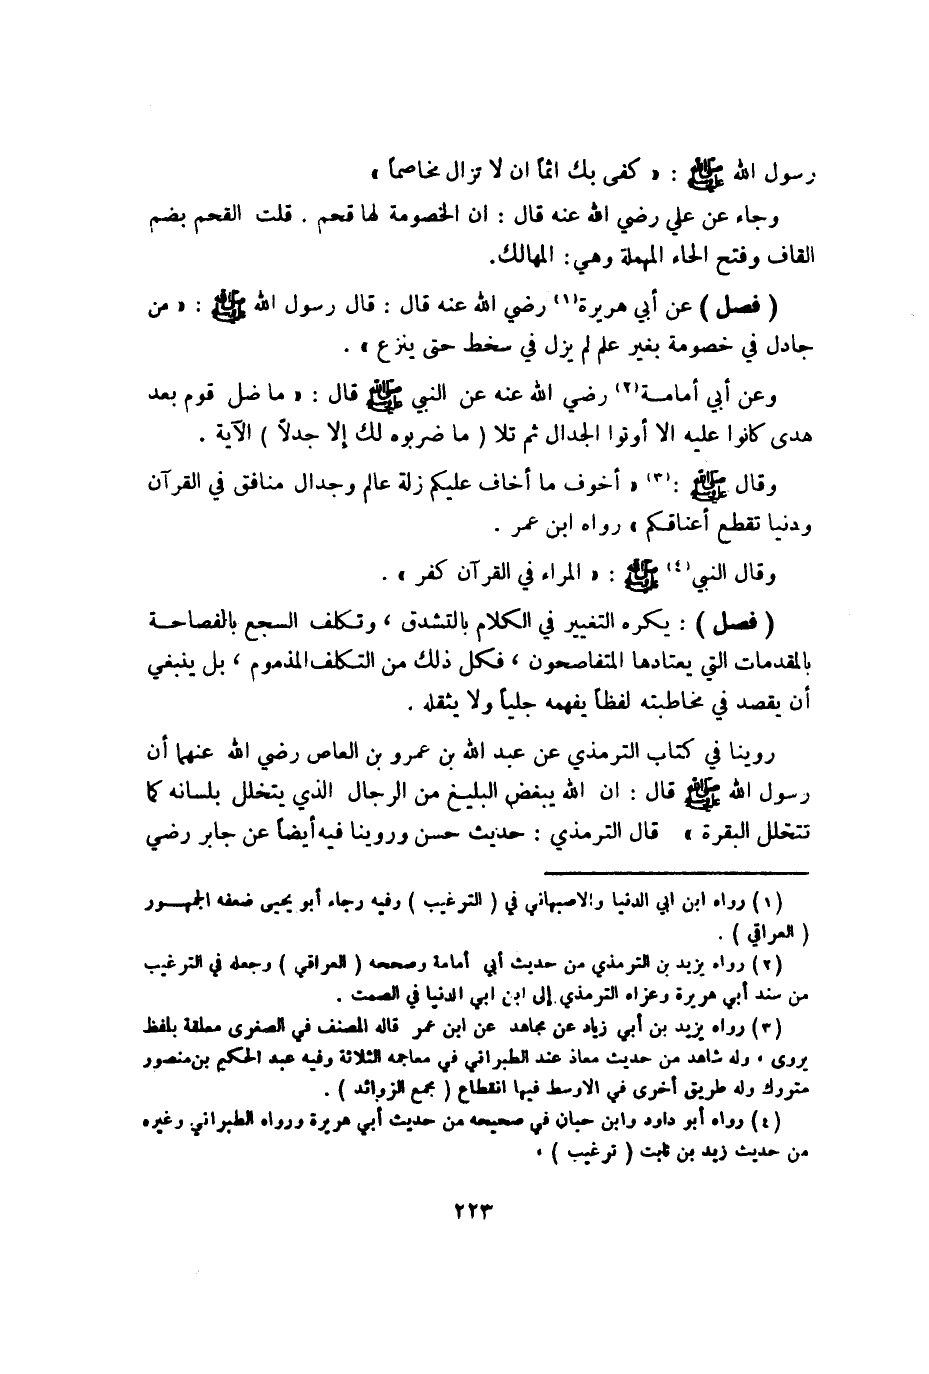 رسول الله ﷺ : « كفى بك اثماً ان لا تزال مخاصماً »
وجاء عن علي رضي الله عنه قال : ان الخصومة لها قحم . قلت القحم بضم
القاف وفتح الحاء المهملة وهي: المهالك.
( فصل ) عن أبي هريرة(١) رضي الله عنه قال : قال رسول الله ﷺ : « من
جادل في خصومة بغير علم لم يزل في سخط حتى ينزع » .
وعن أبي أمامـــة(٢) رضي الله عنه عن النبي ﷺ قال : « ما ضل قوم بعد
هدى كانوا عليه الا أوتوا الجدال ثم تلا ( ما ضربوه لك إلا جدلاً ) الآية .
وقال ﷺ :(٣) « أخوف ما أخاف عليكم زلة عالم وجدال منافق في القرآن
ودنيا تقطع أعناقكم » رواه ابن عمر .
وقال النبي(٤) ﷺ : « المراء في القرآن كفر » .
( فصل ) : يكره التغيير في الكلام بالتشدق ، وتكلف السجع بالفصاحـــة
بالمقدمات التي يعتادها المتفاصحون ، فكل ذلك من التكلف المذموم ، بل ينبغي
أن يقصد في مخاطبته لفظاً يفهمه جلياً ولا يثقله .
روينا في كتاب الترمذي عن عبد الله بن عمرو بن العاص رضي الله عنهما أن
رسول الله ﷺ قال : ان الله يبغض البليغ من الرجال الذي يتخلل بلسانه كما
تتخلل البقرة » قال الترمذي : حديث حسن وروينا فيه أيضاً عن جابر رضي
(١) رواه ابن ابي الدنيا والاصبهاني في ( الترغيب ) وفيه رجاء أبو يحيى ضعفه الجمهـــور
( العراقي ) .
(٢) رواه يزيد بن الترمذي من حديث أبي أمامة وصححه ( العراقي ) وجعله في الترغيب
من سند أبي هريرة وعزاه الترمذي إلى ابن ابي الدنيا في الصمت .
(٣) رواه يزيد بن أبي زياد عن مجاهد عن ابن عمر قاله المصنف في الصغرى معلقة بلفظ
يروى ، وله شاهد من حديث معاذ عند الطبراني في معاجمه الثلاثة وفيه عبد الحكيم بن منصور
متروك وله طريق أخرى في الاوسط فيها انقطاع ( مجمع الزوائد ) .
(٤) رواه أبو داود وابن حبان في صحيحه من حديث أبي هريرة ورواه الطبراني وغيره
من حديث زيد بن ثابت ( ترغيب ) ،
٢٢٣